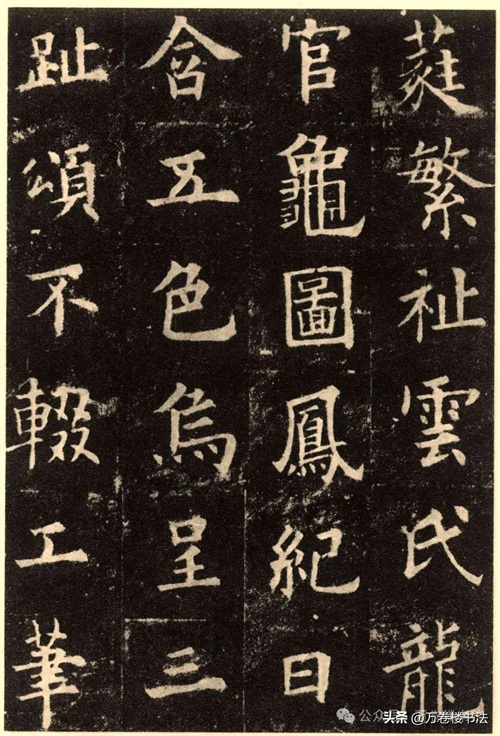 蕤繁祉雲氏龍
官龜圖鳳紀日
含五色烏呈三
趾頌不輟工筆
公众
头条 @万卷楼书法